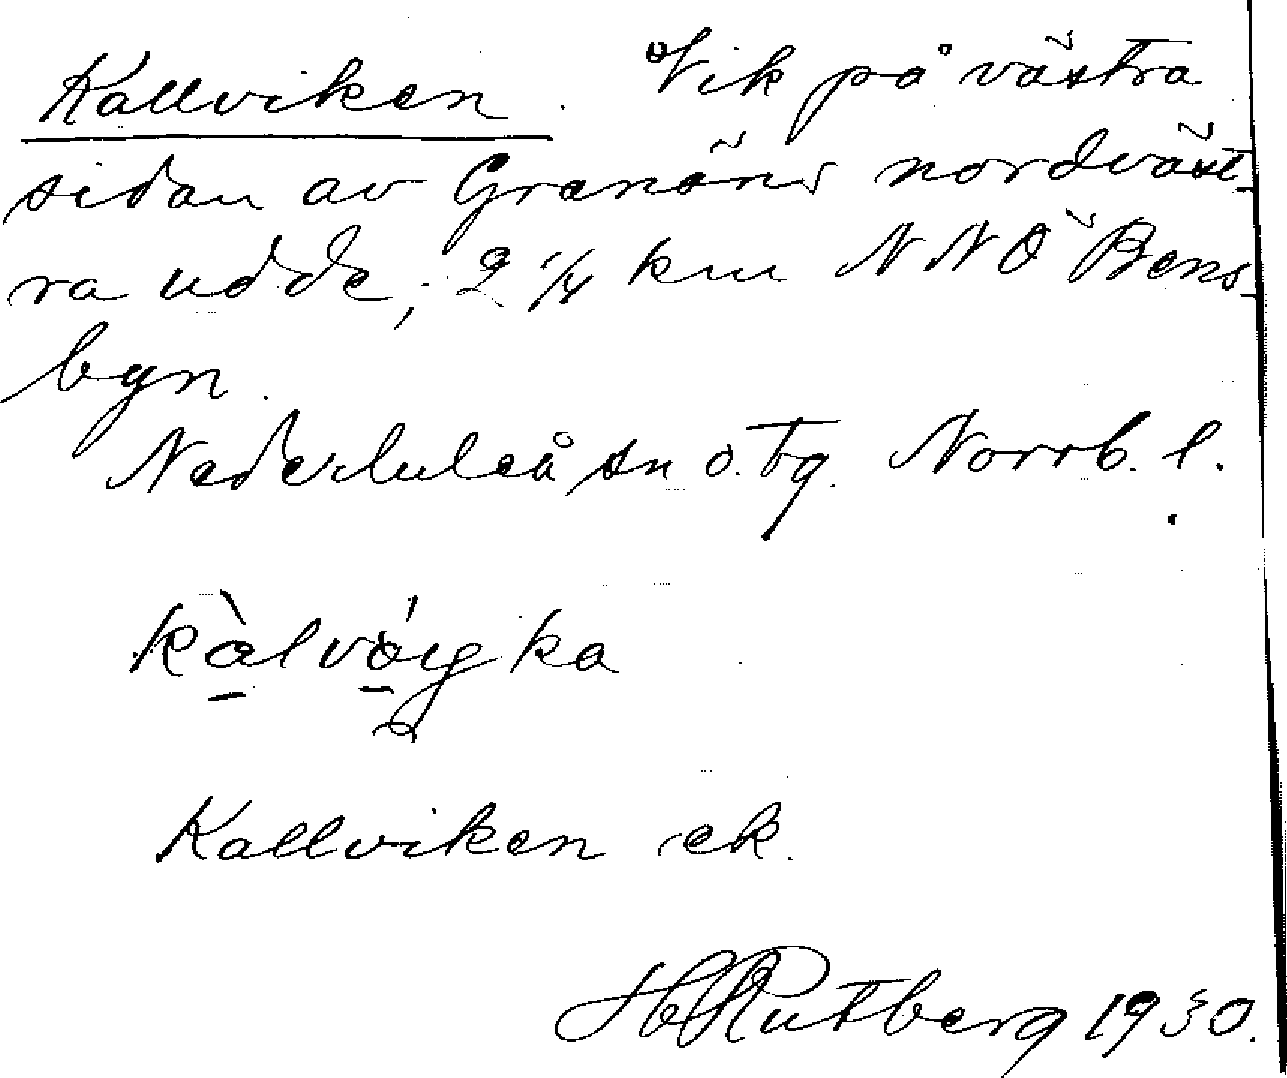 Kallviken. Vik på västra
sidan av Granöns nordväst-
ra udde, 2 1/4 km NNÖ Bens-
byn.
Nederluleå sn o. tg. Norrb. l.
Kallviken ek.
H Rutberg 1930.